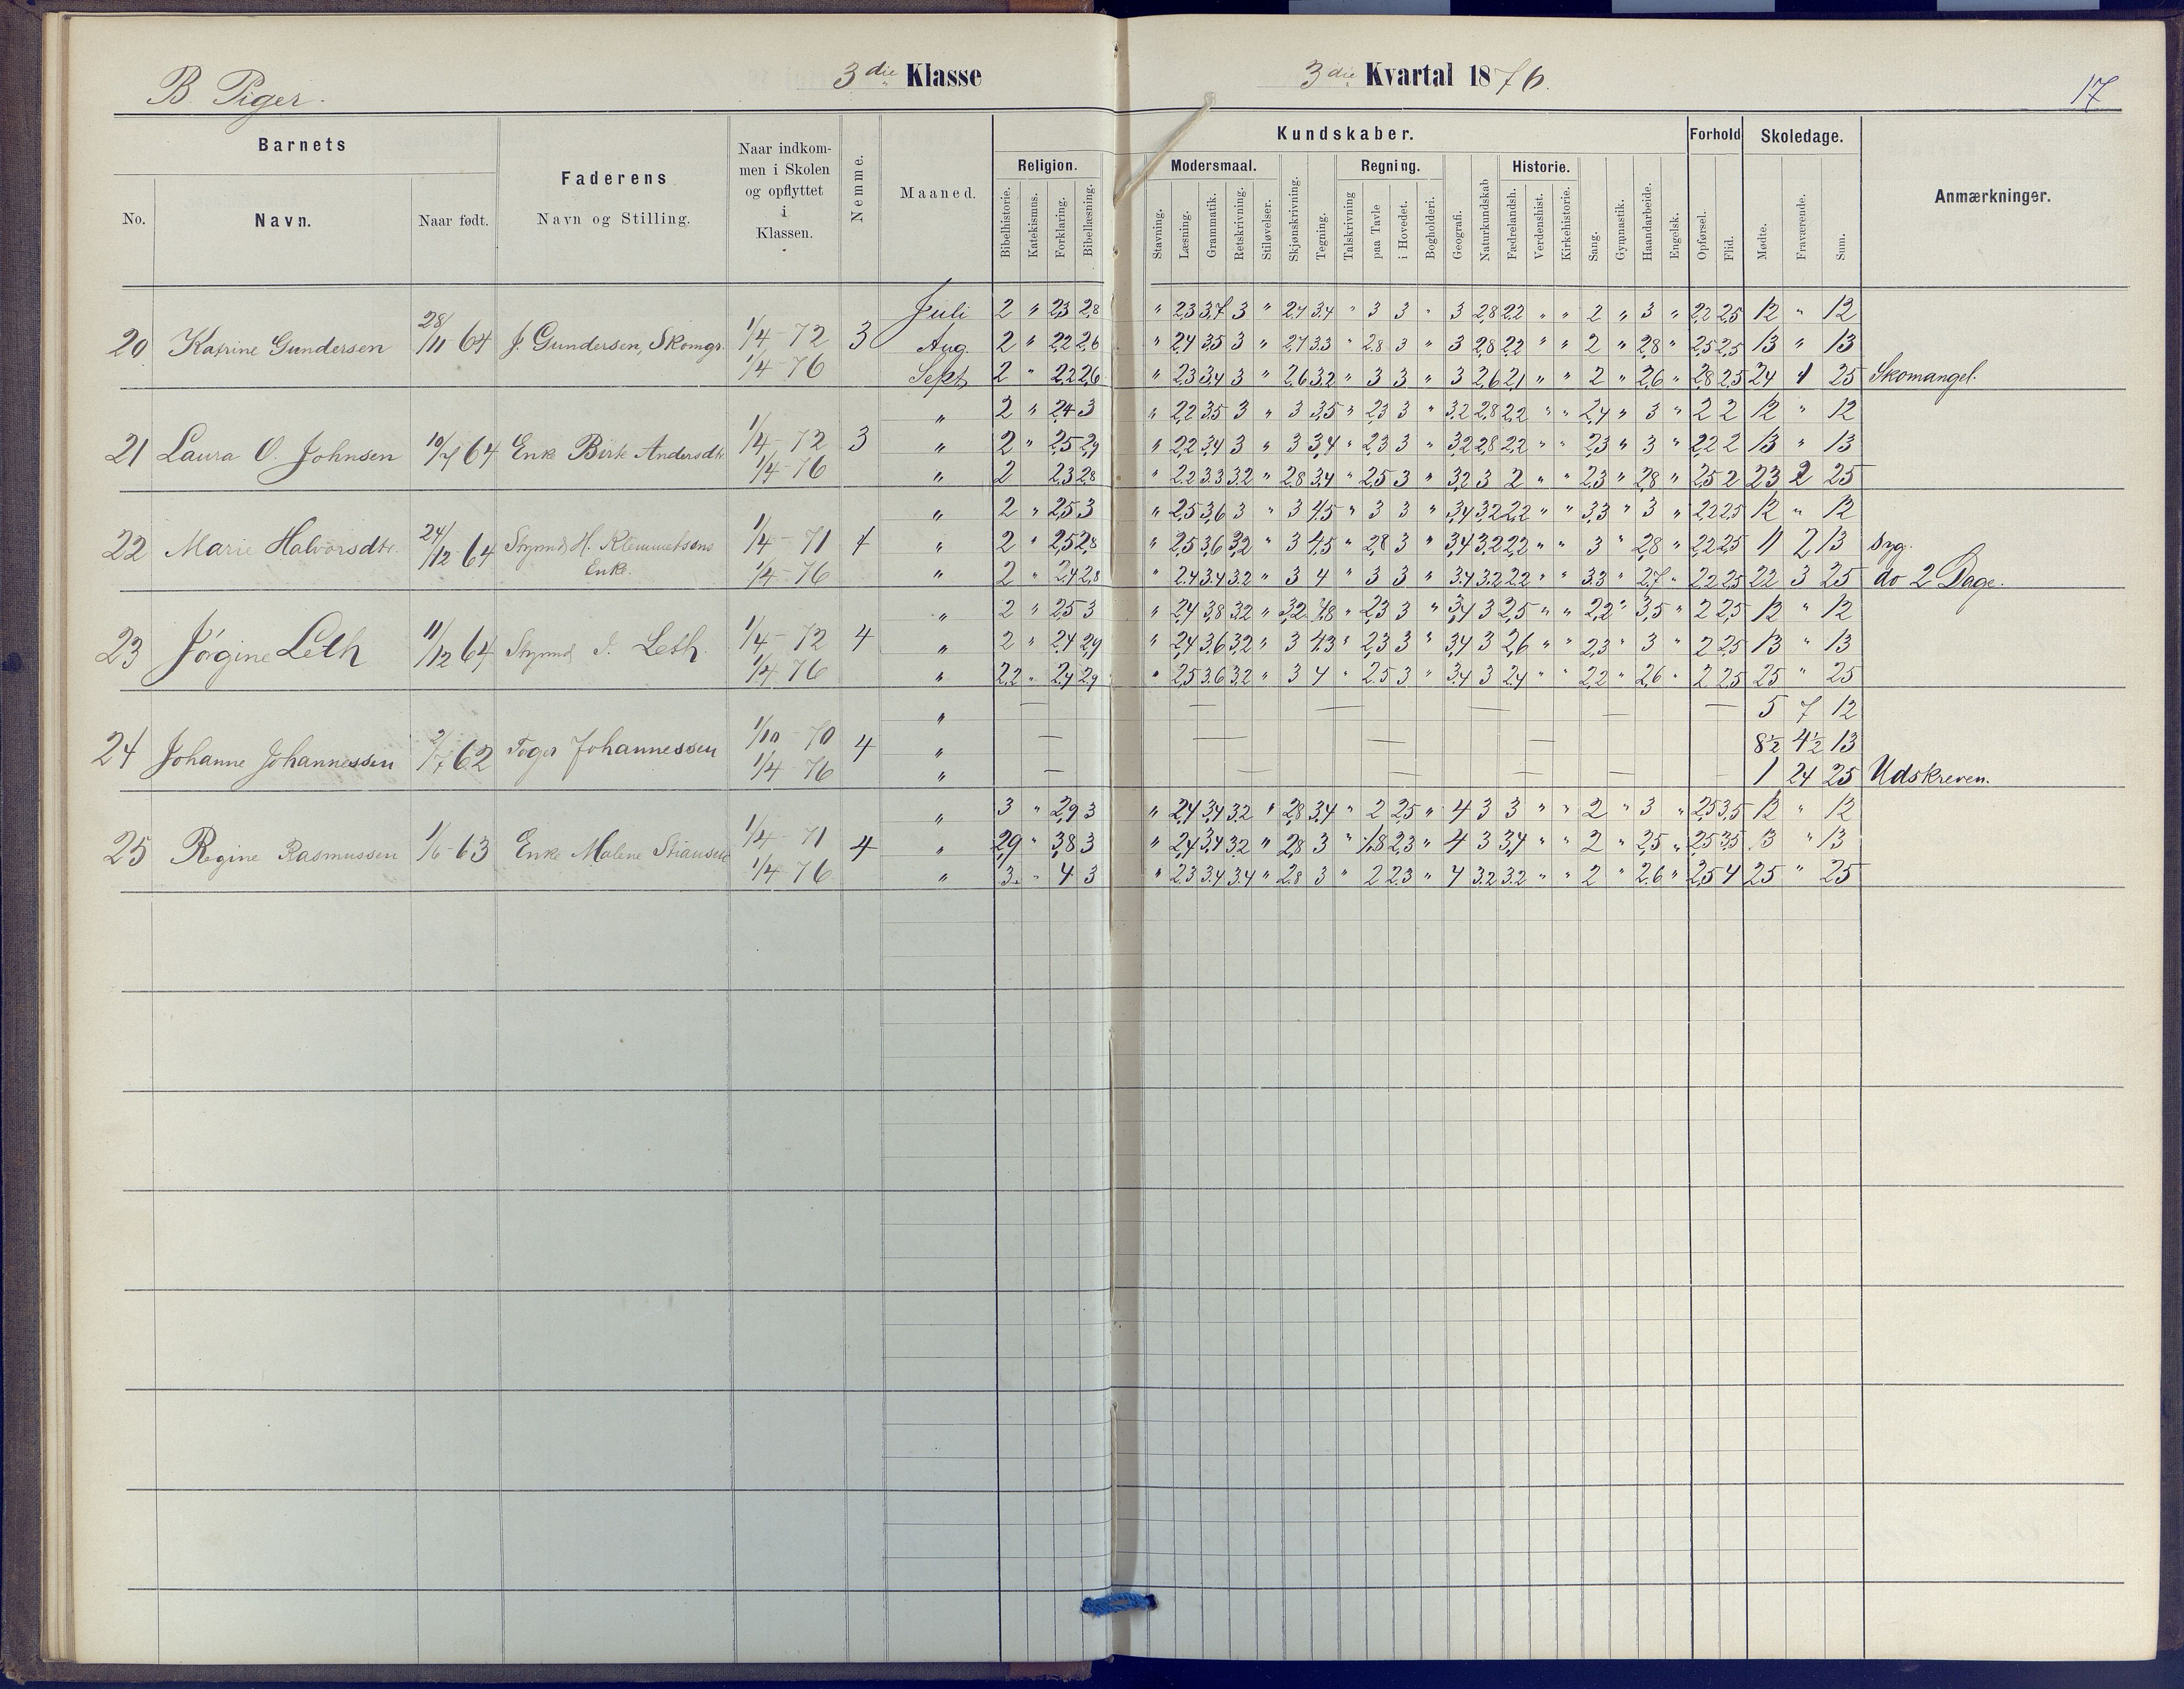 B. Piger.
3die Klasse
3die Kvartal 1876.
17
Barnets
No.
Navn.
Naar født.
Faderens
Navn og Stilling.
Naar indkom-
men i Skolen
og opflyttet
i
Klassen.
Nemme.
Maaned.
Kundskaber.
Religion.
Bibelhistorie.
Katekismus.
Forklaring.
Bibellæsning.
Modersmaal.
Stavning.
Læsning.
Grammatik.
Retskrivning.
Stiløvelser.
Skjønskrivning.
Tegning.
Regning.
Talskrivning
paa Tavle
i Hovedet.
Bogholderi.
Geografi.
Naturkundskab
Historie.
Fædrelandsh.
Verdenshist.
Kirkehistorie.
Sang.
Gymnastik.
Haandarbeide.
Engelsk.
Forhold
Opførsel.
Flid.
Skoledage.
Mødte.
Fraværende.
Sum.
Anmærkninger.
20 Katrine Gundersen 28/11 64 J. Gundersen, Skomgr. 1/4 - 72 1/4 - 76 3
Juli 2 " 2,3 2,8 " 2,3 3,7 3 " 2,7 3,4 " 3 3 " 3 2,8 2,2 " " 2 " 3 " 2,2 2,5 12 " 12
Aug. 2 " 2,2 2,6 " 2,4 3,5 3 " 2,7 3,3 " 2,8 3 " 3 2,8 2,2 " " 2 " 2,8 " 2,5 2,5 13 " 13
Sept 2 " 2,2 2,6 " 2,3 3,4 3 " 2,6 3,2 " 3 3 " 3 2,6 2,1 " " 2 " 2,6 " 2,8 2,5 24 1 25 Skomangel.
21 Laura O. Johnsen 10/7 64 Enke Birte Andersdtr. 1/4 - 72 1/4 - 76 3
" 2 " 2,4 3 " 2,2 3,5 3 " 3 3,5 " 2,3 3 " 3,2 2,8 2,2 " " 2,4 " 3 " 2 2 12 " 12
" 2 " 2,5 2,9 " 2,2 3,4 3 " 3 3,4 " 2,3 3 " 3,2 2,8 2,2 " " 2,3 " 3 " 2,2 2 13 " 13
" 2 2,3 2,8 " 2,2 3,3 3,2 " 2,8 3,4 " 2,5 3 " 3,2 3 2 " " 2,3 " 2,8 " 2,5 2 23 2 25
22 Marie Halvorsdtr. 24/12 64 Stymd H. Klemmetsens Enke. 1/4 - 71 1/4 - 76 4
" 2 " 2,5 3 " 2,5 3,6 3 " 3 4,5 " 3 3 " 3,4 3,2 2,2 " " 3,3 " 3 " 2,2 2,5 12 " 12
" 2 " 2,5 2,8 " 2,5 3,6 3,2 " 3 4,5 " 2,8 3 " 3,4 3,2 2,2 " " 3 " 2,8 " 2,2 2,5 11 2 13 syg.
" 2 " 2,4 2,8 " 2,4 3,4 3,2 " 3 4 " 3 3 " 3,4 3,2 2,2 " " 3,3 " 2,7 " 2,2 2,5 22 3 25 do 2 Dage.
23 Jörgine Leth 11/12 64 Stymd J. Leth. 1/4 - 72 1/4 76 4
" 2 " 2,5 3 " 2,4 3,8 3,2 " 3,2 4,8 " 2,3 3 " 3,4 3 2,5 " " 2,2 " 3,5 " 2 2,5 12 " 12
" 2 " 2,4 2,9 " 2,4 3,6 3,2 " 3 4,3 " 2,3 3 " 3,4 3 2,6 " " 2,3 " 3 " 2 2,5 13 " 13
" 2,2 " 2,4 2,9 " 2,5 3,6 3,2 " 3 4 " 2,5 3 " 3,4 3 2,4 " " 2,2 " 2,6 " 2 2,5 25 " 25
24 Johanne Johannessen 2/7 62 Toger Johannessen 1/10 - 70 1/4 - 76 4
" — — — — — — 5 7 12
" — — — — — 8½ 4½ 13
" — — — — — 1 24 25 Udskreven.
25 Regine Rasmussen 1/6 - 63 Enke Malene Stiansen 1/4 - 71 1/4 76 4
" 3 " 2,9 3 " 2,4 3,4 3,2 " 2,8 3,4 " 2 2,5 " 4 3 3 " " 2 " 3 " 2,5 3,5 12 " 12
" 2,9 " 3,8 3 " 2,4 3,4 3,2 " 2,8 3 " 1,8 2,3 " 4 3 3,4 " " 2 " 2,5 " 2,5 3,5 13 " 13
" 3 " 4 3 " 2,3 3,4 3,4 " 2,8 3 " 2 2,3 " 4 3,2 3,2 " " 2 " 2,6 " 2,5 4 25 " 25